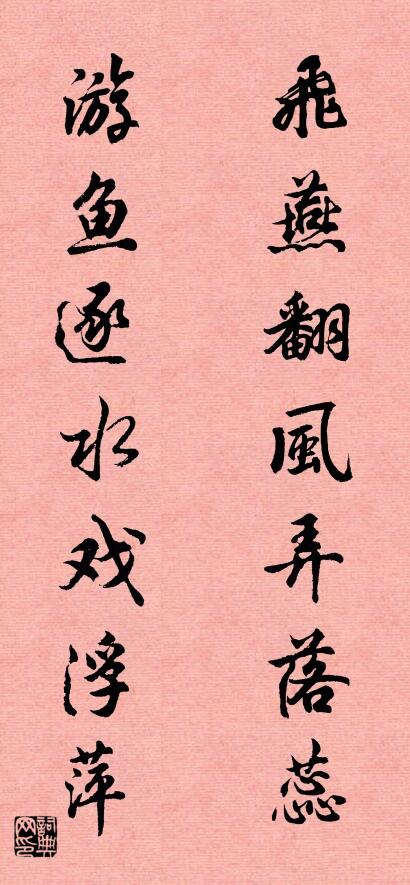 飛燕翻風弄落蕊
游鱼逐水戏浮萍
詞典网印